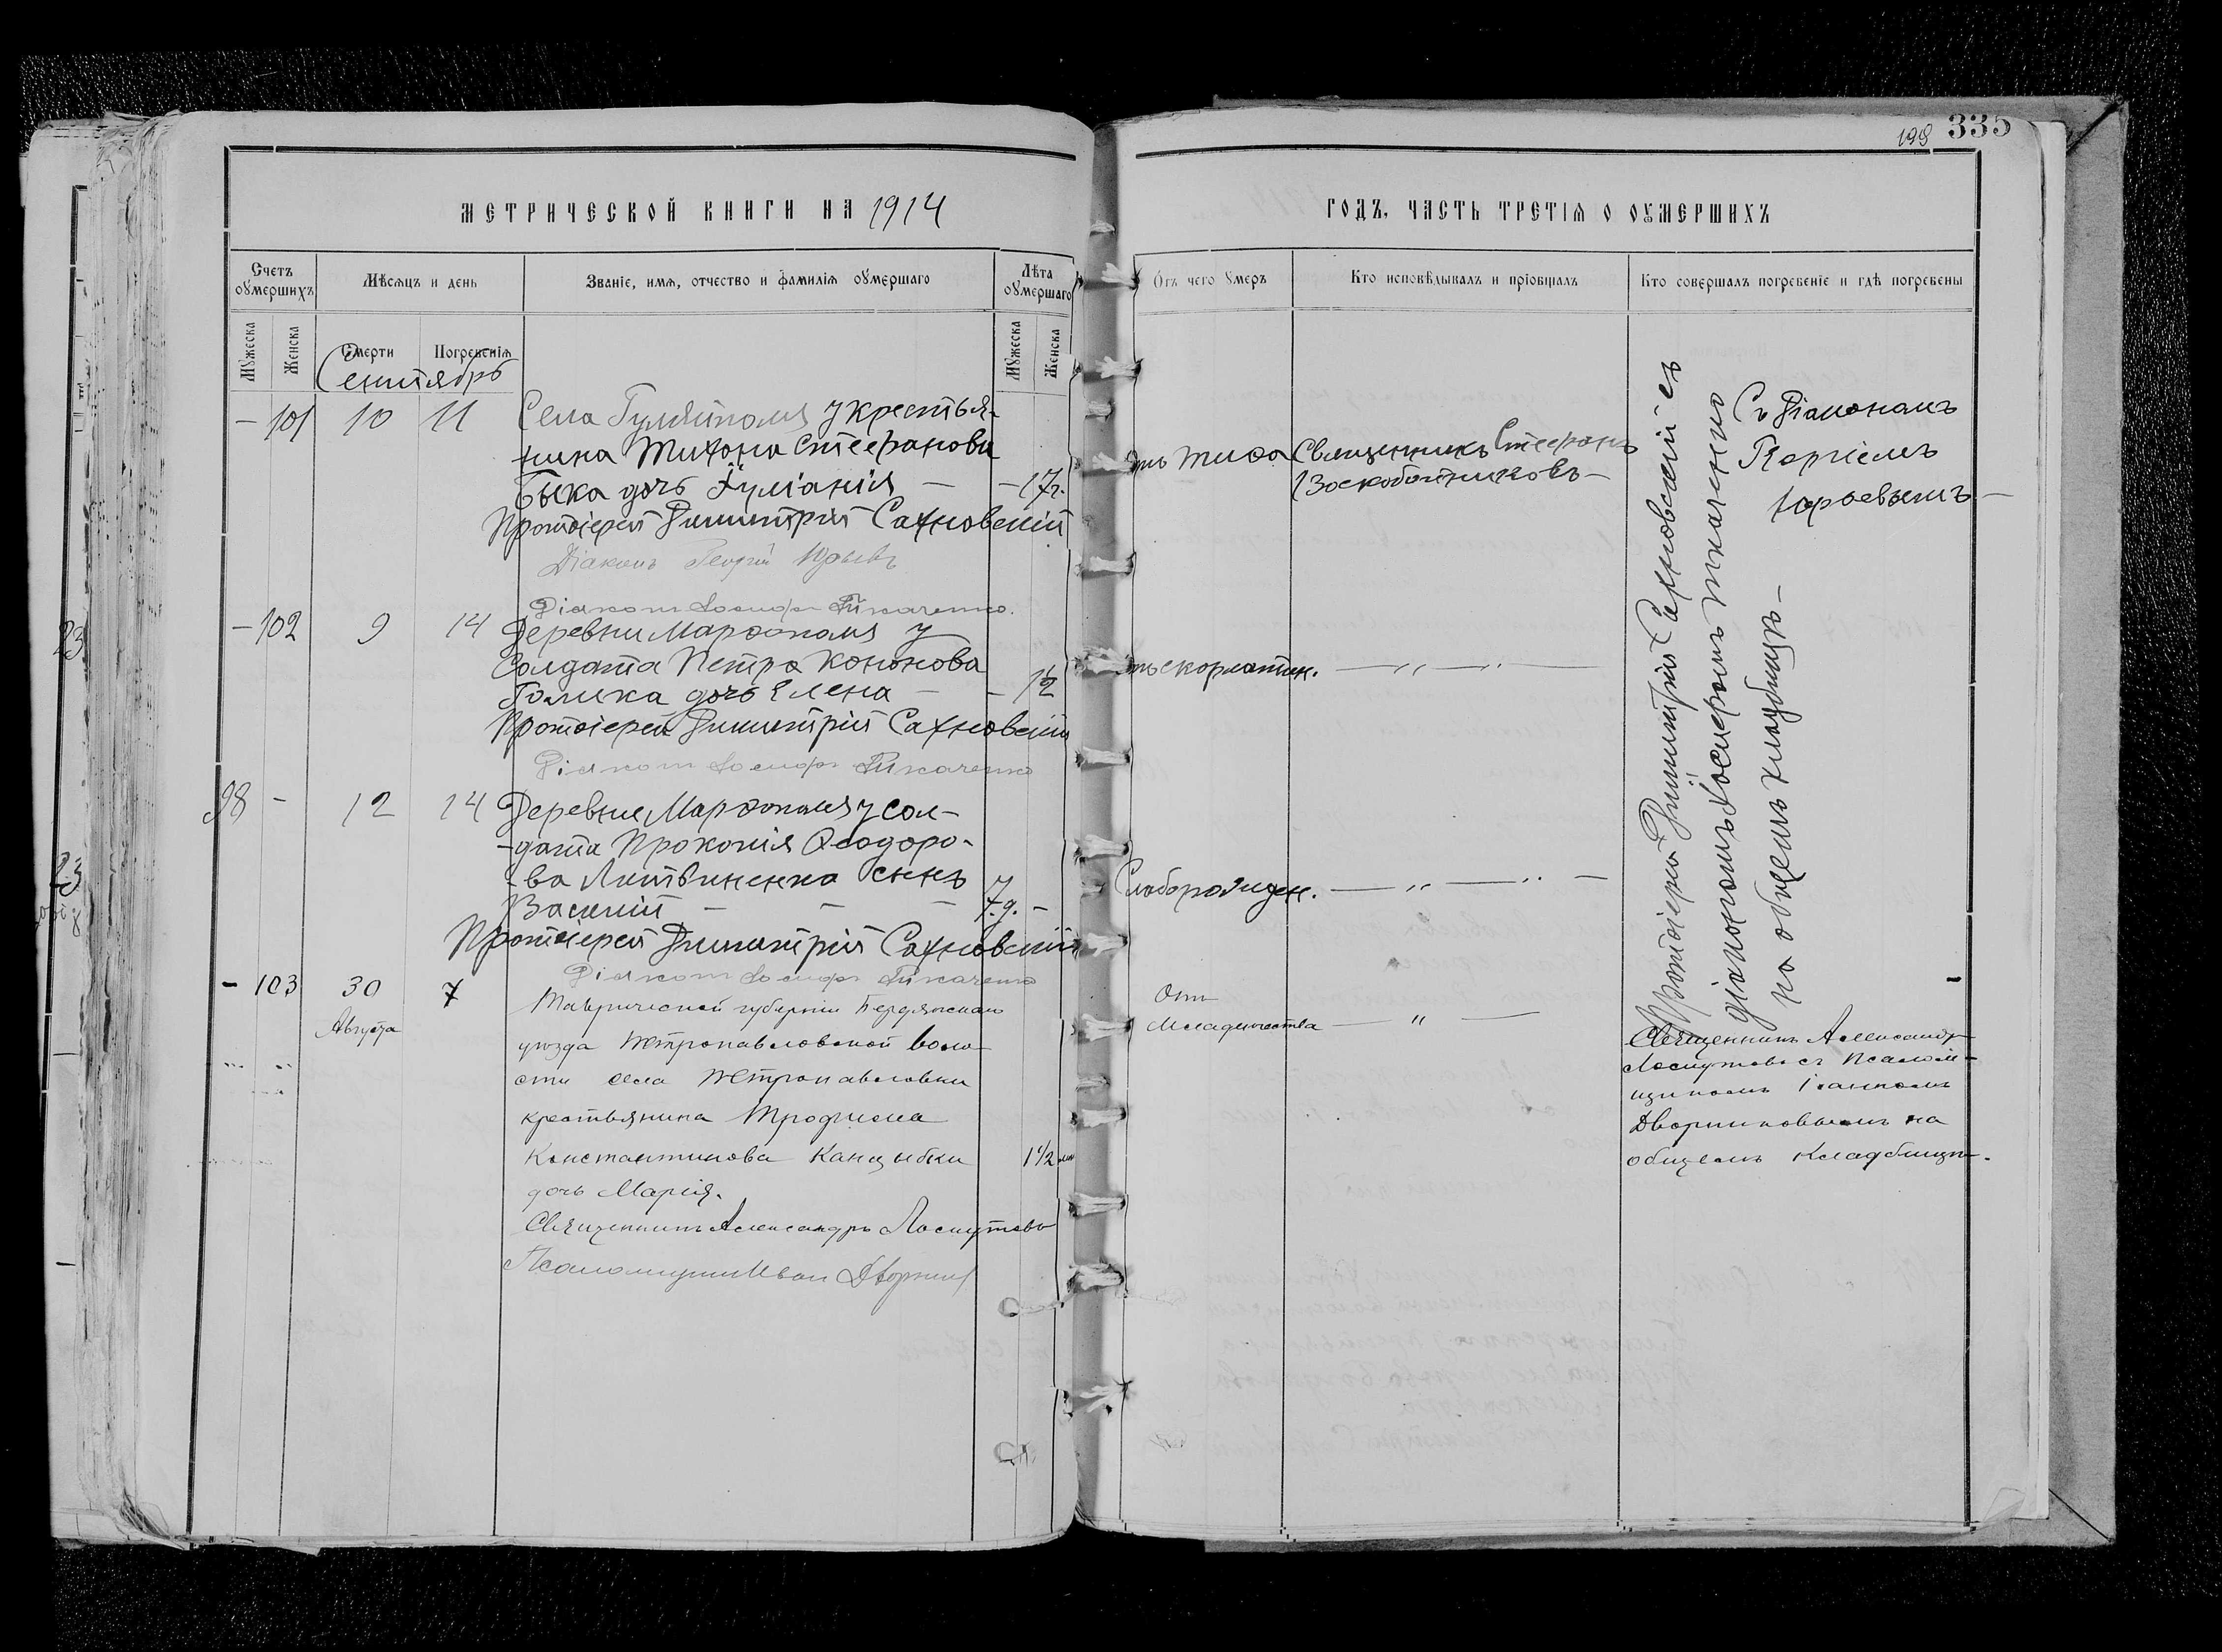 МЕТРИЧЕСКОЙ КНИГИ НА 1914
Счетъ оумершихъ
Мѣсяцъ и день
Званіе, имя, отчество и фамилія оумершаго
Лѣта оумершаго
Мужеска
Женска
Смерти
Погребенія
Мужеска
Женска
Сентябрь
– 101 10 11 Села Гуляйполя у крестья-
нина Тихона Стефанова
Быка дочь Іуліанія – – 17 г.
Протоіерей Димитрій Сахновскій
Діаконъ Георгій Юрьевъ
Діаконъ Іосифъ Ткаченко.
– 102 9 14 Деревни Марфополя у
Солдата Петра Кононова
Голика дочь Елена – – 1½
Протоіерей Димитрій Сахновскій
Діаконъ Іосифъ Ткаченко
98 – 12 14 Деревни Марфополя у сол-
-дата Прокопія Ѳеодоро-
-ва Литвиненка сынъ
Василій – – – 7 д. –
Протоіерей Димитрій Сахновскій
Діаконъ Іосифъ Ткаченко
– 103 30 7 Таврической губерніи Бердянскаго
Августа
уѣзда Петропавловской воло-
сти села Петропавловки
крестьянина Трофима
Константинова Канцыбки 1½
дочь Марія.
Священникъ Александръ Лоскутовъ
Псаломщикъ Иван Дворник
198 335
ГОДЪ, ЧАСТЬ ТРЕТІЯ О ОУМЕРШИХЪ
Отъ чего умеръ
Кто исповѣдывалъ и пріобщалъ
Кто совершалъ погребеніе и гдѣ погребены
отъ тифа Священникъ Стефанъ
Воскобойниковъ –
Съ діакономъ
Георгіемъ
Юрьевымъ –
отъ скарлатин. — „ — „ —
Слаборожден. — „ — „ —
Протоіерей Димитрій Сахновскій съ
діакономъ Іосифомъ Ткаченко
на общемъ кладбищѣ –
Отъ
младенчества — „ —
Священникъ Александръ
Лоскутовъ съ псалом-
щикомъ Іоанномъ
Дворниковымъ на
общемъ кладбищѣ.